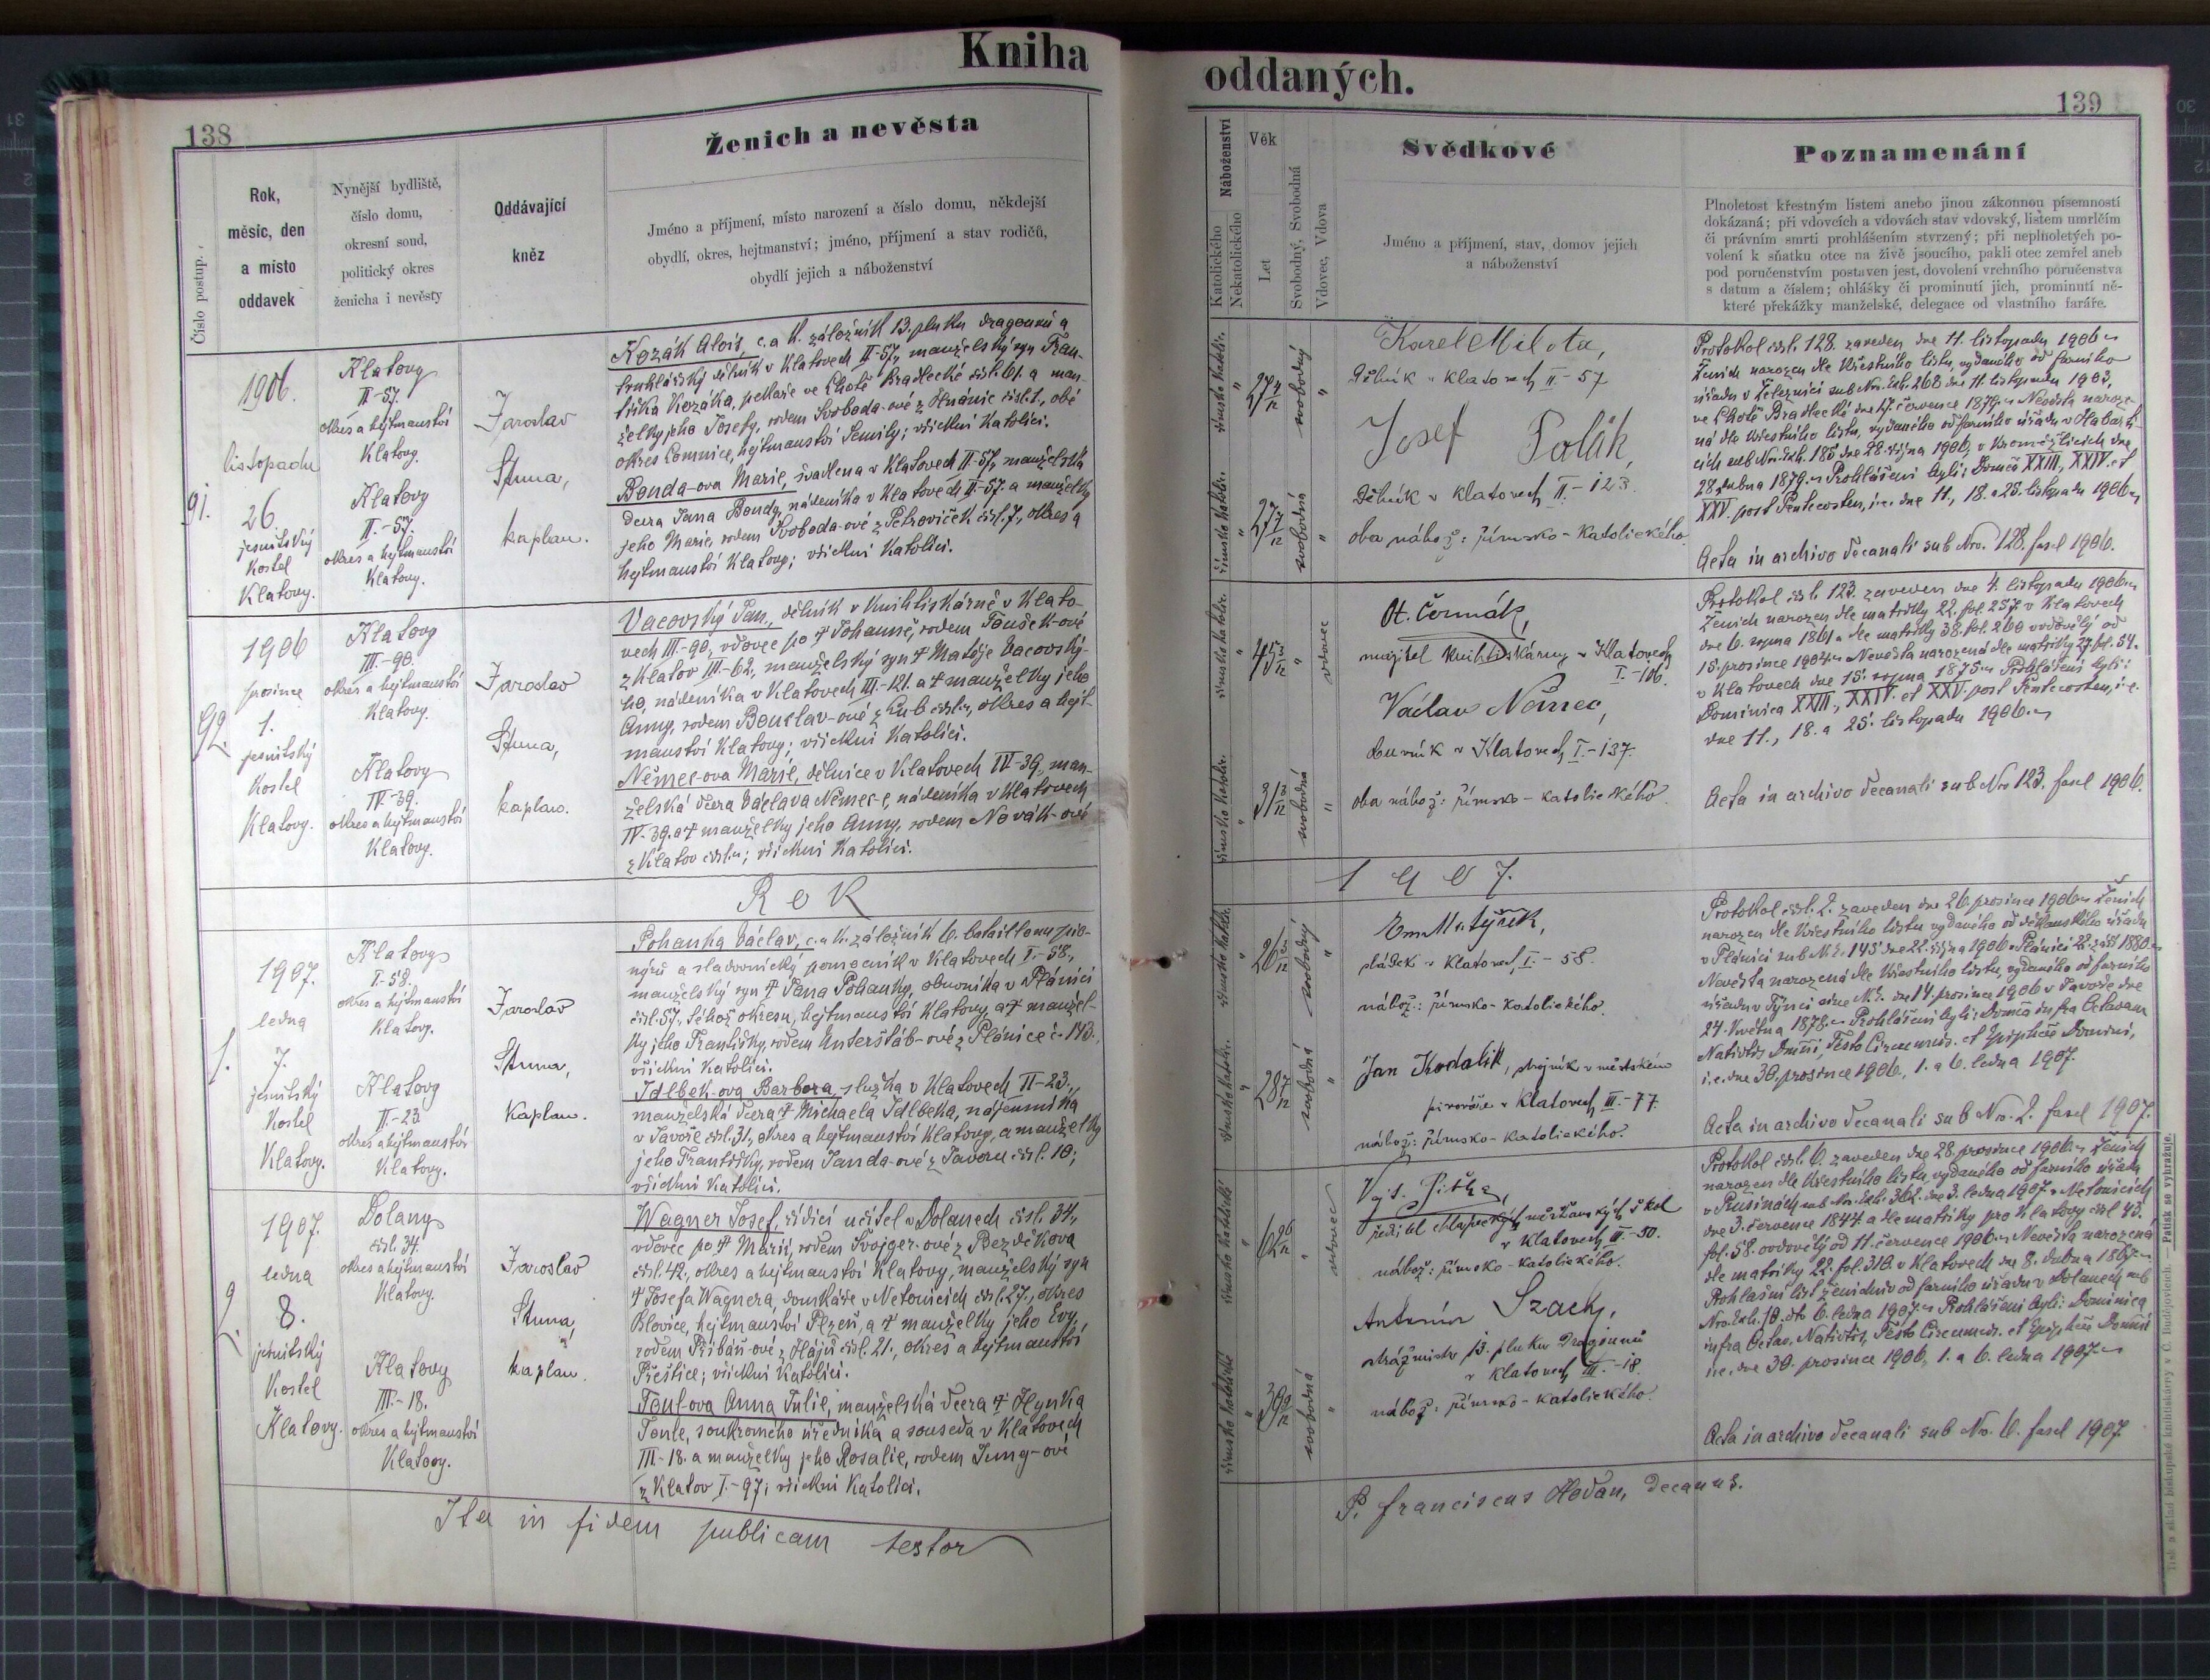 Kniha
138
Číslo postup.
Rok,
měsíc, den
a místo
oddavek
Nynější bydliště,
číslo domu,
okresní soud,
politický okres
ženicha i nevěsty
Oddávající
kněz
Ženich a nevěsta
Jméno a příjmení, místo narození a číslo domu, někdejší
obydlí, okres, hejtmanství; jméno, příjmení a stav rodičů,
obydlí jejich a náboženství
91.
1906.
listopadu
26.
jesuitský
Kostel
Klatovy.
Klatovy
II-57.
okres a hejtmanství
Klatovy.
Klatovy
II.-57.
okres a hejtmanství
Klatovy.
Jaroslav
kaplan.
Kozák Alois, c. a k. záložník 13. pluku dragounů a
truhlářský dělník v Klatovech II-57., manželský syn Fran-
tiška Kozáka, pekaře ve Lhotě Bradlecké čísl. 61. a man-
želky jeho Josefy, rodem Svoboda-ové z čísl. 1., obé
okres Lomnice, hejtmanství Semily; všichni Katolíci.
Benda-ova Marie, švadlena v Klatovech II-57., manželská
dcera Jana Bendy, nádeníka v Klatovech II-57. a manželky
jeho Marie, rodem Svoboda-ové z Petroviček čísl. 7., okres a
hejtmanství Klatovy; všichni Katolíci.
92.
1906
prosince
1.
jesuitský
Kostel
Klatovy.
Klatovy
III.-90.
okres a hejtmanství
Klatovy.
Klatovy
IV.-39.
okres a hejtmanství
Klatovy.
Jaroslav
kaplan.
Vacovský Jan, dělník v knihtiskárně v Klato-
vech III-90., vdovec po † Johanně, rodem Toušek-ové
z Klatov III-62., manželský syn † Matěje Vacovský-
ho, nádeníka v Klatovech III.-121. a † manželky jeho
Anny, rodem z Lub čísl., okres a hejt-
manství Klatovy; všichni Katolíci.
Němec-ova Marie, dělnice v Klatovech IV-39., man-
želská dcera Václava Němec-e, nádeníka v Klatovech
IV-39. a † manželky jeho Anny, rodem Novák-ové
z Klatov čísl.; všichni Katolíci.
Rok
1.
1907.
ledna
7.
jesuitský
Kostel
Klatovy.
Klatovy
I.-58.
okres a hejtmanství
Klatovy.
Klatovy
II-23.
okres a hejtmanství
Klatovy.
Jaroslav
Kaplan.
Pohanka Václav, c. a k. záložník 6. bataillonu pio-
nýrů a sladovnický pomocník v Klatovech I-58.,
manželský syn † Jana Pohanky, obuvníka v Plánici
čísl. 57., téhož okresu, hejtmanství Klatovy, a † manžel-
ky jeho Františky, rodem Unterštáb-ové z Plánice č. 143.,
všichni Katolíci.
Idlbek-ova Barbora, služka v Klatovech II-23.,
manželská dcera † Michaela Idlbeka, nájemníka
v Javoře čísl. 31., okres a hejtmanství Klatovy, a manželky
jeho Františky, rodem Janda-ové z Javoru čísl. 10;
všichni Katolíci.
2.
1907.
ledna
8.
jesuitský
Kostel
Klatovy.
Dolany
čísl. 34.
okres a hejtmanství
Klatovy.
Klatovy
III.-18.
okres a hejtmanství
Klatovy.
Jaroslav
kaplan.
Wagner Josef, řídící učitel v Dolanech čísl. 34.,
vdovec po † Marii, rodem Svojger-ové z Bezděkova
čísl. 42., okres a hejtmanství Klatovy, manželský syn
† Josefa Wagnera, domkáře v Netonicích čísl. 27., okres
Blovice, hejtmanství Plzeň, a † manželky jeho Evy,
rodem Pribáň-ové z Hájů čísl. 21., okres a hejtmanství
Přeštice; všichni Katolíci.
Tonl-ova Anna Julie, manželská dcera † Hynka
Tonle, soukromého úředníka a souseda v Klatovech
III-18. a manželky jeho Rosalie, rodem Jung-ové
z Klatov I.-97; všichni Katolíci.
Ita in fidem publicam testor
oddaných.
139
Náboženství
Katolického
Nekatolického
Věk
Let
Svobodný, Svobodná
Vdovec, Vdova
Svědkové
Jméno a příjmení, stav, domov jejich
a náboženství
Poznamenání
Plnoletost křestným listem anebo jinou zákonnou písemností
dokázaná; při vdovcích a vdovách stav vdovský, listem umrlčím
či právním smrti prohlášením stvrzený; při neplnoletých po-
volení k sňatku otce na živě jsoucího, pakli otec zemřel aneb
pod poručenstvím postaven jest, dovolení vrchního poručenstva
s datum a číslem; ohlášky či prominutí jich, prominutí ně-
které překážky manželské, delegace od vlastního faráře.
římsko katolic.
27 4/12
svobodný
římsko katolic.
27 7/12
svobodná
Karel Milota,
dělník v Klatovech II-57
Josef Polák,
dělník v Klatovech II-123.
oba nábož: římsko-katolického.
Protokol čísl. 128. zaveden dne 11. listopadu 1906
Ženich narozen dle křestního listu, vydaného od farního
úřadu v Železnici sub Nro. Exh. 268 dne 11. listopadu 1903,
ve Lhotě Bradlecké dne 17. července 1879. Nevěsta naroze-
ná dle křestního listu, vydaného od farního úřadu v Habarti-
cích sub Nro. Exh. 185 dne 28. října 1906, v Kroměždicích dne
28. dubna 1879. Prohlášeni byli: Domca XXIII., XXIV. et
XXV. post Pentecosten, i. e. dne 11., 18. a 25. listopadu 1906
Acta in archivo decanali sub Nro. 128. fasc. 1906.
římsko katolic.
45 3/12
vdovec
římsko katolic.
31 3/12
svobodná
Ot. Čermák,
majitel knihtiskárny v Klatovech
I.-106.
Václav Němec,
v Klatovech I.-137.
oba nábož: římsko-katolického.
Protokol čísl. 123. zaveden dne 4. listopadu 1906
Ženich narozen dle matriky 22. fol. 257 v Klatovech
dne 6. srpna 1861 a dle matriky 38. fol. 260 vdovělý od
15. prosince 1904. Nevěsta narozená dle matriky 27. fol. 54.
v Klatovech dne 15. srpna 1875. Prohlášeni byli:
Dominica XXIII., XXIV. et XXV. post Pentecosten, i. e.
dne 11., 18. a 25. listopadu 1906.
Acta in archivo decanali sub Nro 123. fasc. 1906.
1907.
římsko katolic.
26
svobodný
římsko katolic.
28 7/12
svobodná
Em. Matýsek,
sládek v Klatovech, I.-58.
nábož: římsko-katolického.
Jan Kodalik, strojník v městském
pivováře v Klatovech III.-77.
nábož: římsko-katolického.
Protokol čísl. 2. zaveden dne 26. prosince 1906 Ženich
narozen dle křestního listu vydaného od děkanského úřadu
v Plánici sub N.E. 145 dne 22. října 1906 v Plánici 22. září 1880.
Nevěsta narozená dle křestního listu, vydaného od farního
úřadu v Týnci sine N.E. dne 14. prosince 1906 v Javoře dne
24. května 1878. Prohlášeni byli: Domca infra Octavam
Nativitis Dmini, Festo Circumcis. et Epiphaniae Domini,
i. e. dne 30. prosince 1906, 1. a 6. ledna 1907.
Acta in archivo decanali sub Nro. 2. fasc. 1907.
římsko katolické
62 6/12
vdovec
římsko katolické
39 9/12
svobodná
Vojt.
ředitel chlapeckých měšťanských škol
v Klatovech, III.-50.
nábož: římsko-katolického.
Antonín Szach,
strážmistr 13. pluku Dragounů
v Klatovech, III.-18.
nábož: římsko-katolického.
Protokol čísl. 6. zaveden dne 28. prosince 1906. Ženich
narozen dle křestního listu, vydaného od farního úřadu
v Prusinách sub Nro. Exh. 362. dne 3. ledna 1907 v Netonicích
dne 3. července 1844. a dle matriky pro Klatovy čísl. 43.
fol. 58. ovdovělý od 11. července 1906. Nevěsta narozená
dle matriky 22. fol. 310. v Klatovech dne 8. dubna 1867.
Prohlašní list ženichův od farního úřadu v Dolanech sub
Nro. Exh. 10. dto 6. ledna 1907. Prohlášeni byli: Dominica
infra Octav. Nativitis, Festo Circumcis. et Epiphaniae Domini
i. e. dne 30. prosince 1906, 1. a 6. ledna 1907.
Acta in archivo decanali sub Nro. 6. fasc. 1907.
P. Franciscus Hodan, decanus.
Tisk a sklad biskupské knihtiskárny v Č. Budějovicích. — Patisk se vyhražuje.